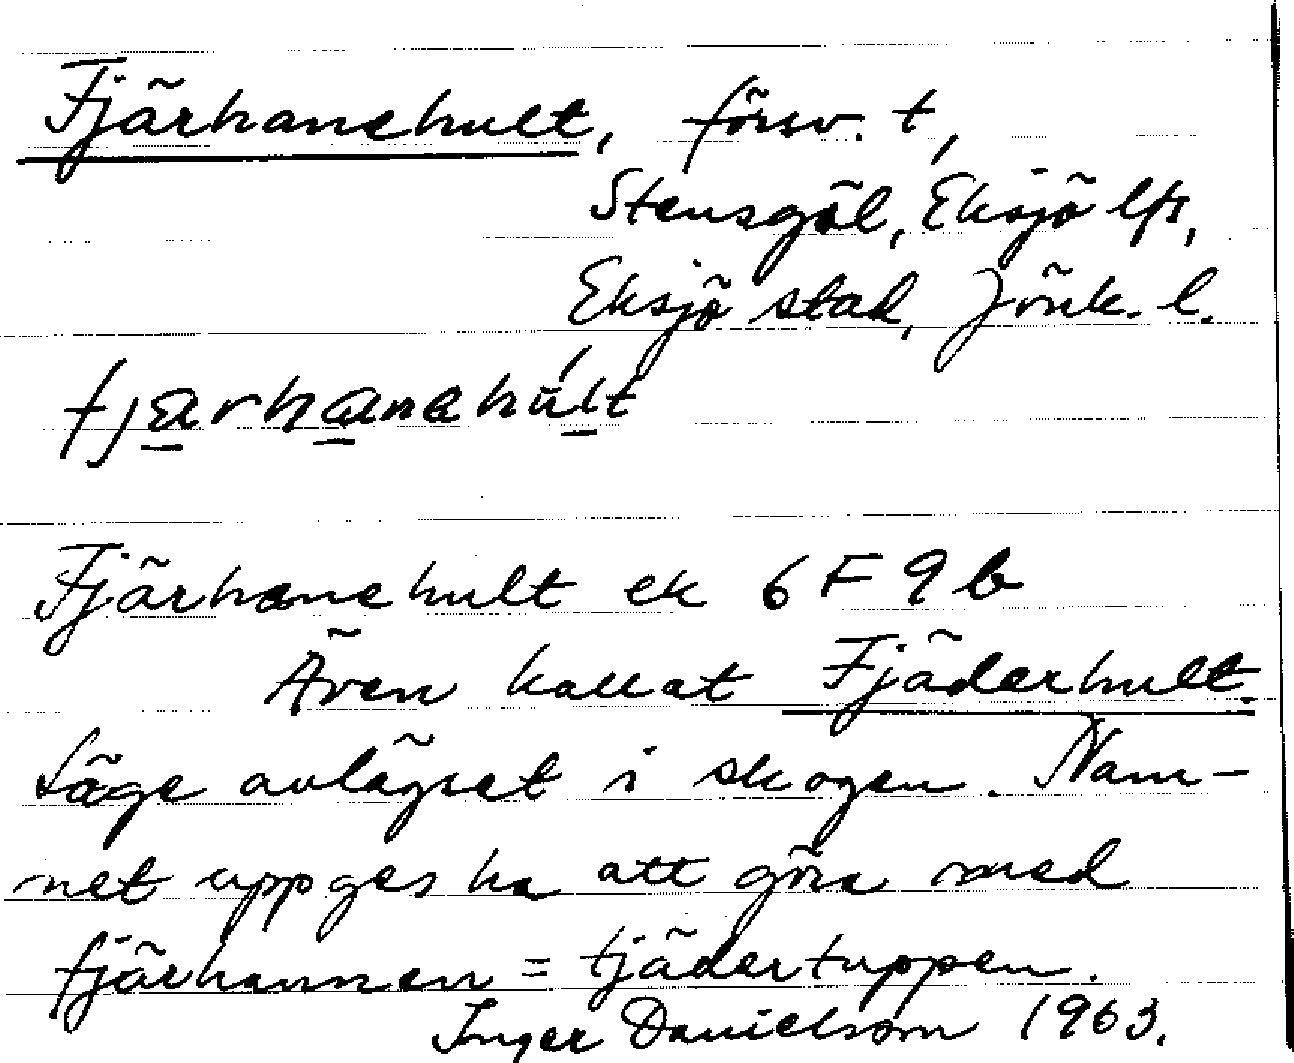 Fjärhanehult, försv. t,
Stensgöl, Eksjö lfs,
Eksjö stad, Jönk. l.
fjarhanehu̇́lt
Fjärhanehult ek 6F9b
Även kallat Fjäderhult.
Läge avlägset i skogen. Nam-
net uppges ha att göra med
fjärhannen = tjädertuppen.
Inger Danielsson 1963.